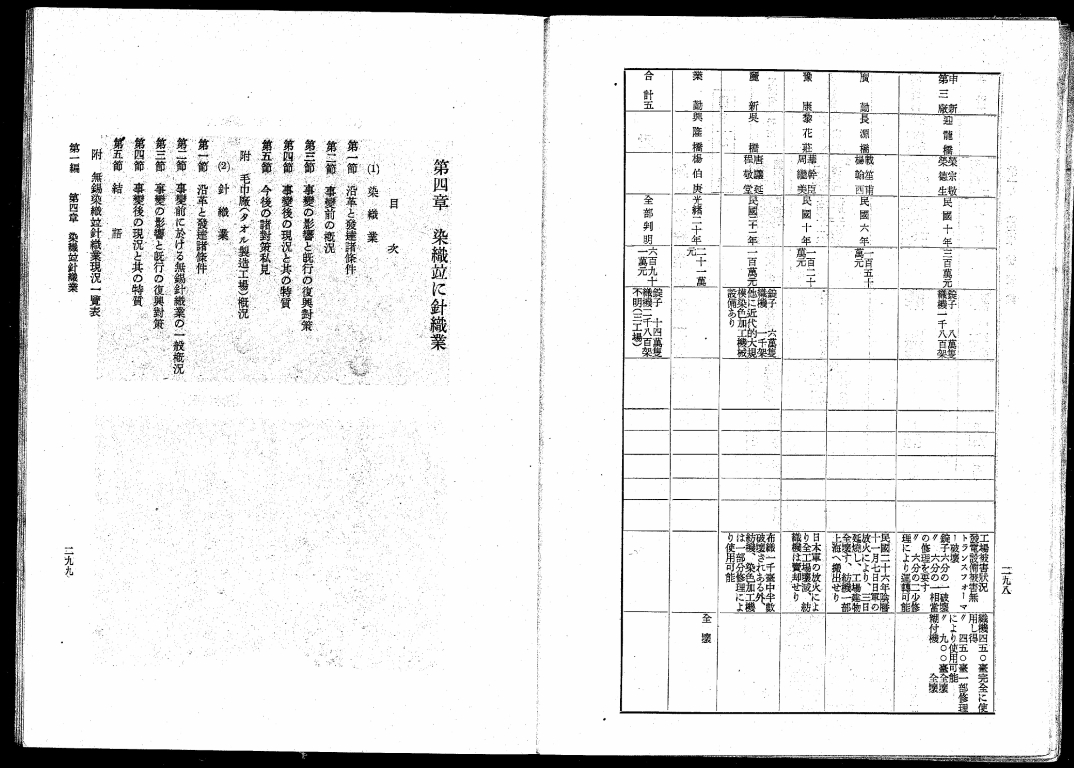 二九八
申新第三廠
迎龍橋
榮宗敬
榮德生
民國十年
三百萬元
錠子 八萬隻
織機一千八百架
工場被害狀況
發電設備被害無
トランスフォーマー破壞
錠子六分の一破壞
〃 六分の一相當の修理を要す
〃 六分の二少修理により運轉可能
織機四五〇臺完全に使用し得
〃 四五〇臺一部修理により使用可能
〃 九〇〇臺全壞
糊付機 全壞
廣勤
長源橋
戴笙甫
楊翰西
民國六年
一百五十萬元
民國二十六年陰曆十一月七日日軍の放火により、三日延燒し、工場建物全壞す、紡機一部上海へ搬出せり
豫康
黎花莊
華幹臣
周繼美
民國十年
一百二十萬元
日本軍の放火により全工場壞滅、紡織機は賣却せり
麗新
吳橋
唐驤延
程敬堂
民國十一年
一百萬元
錠子 六萬隻
織機 一千架
他に近代的大規模染色加工機械設備あり
布織一千臺中半數破壞されある外、紡機、染色加工機は一部分修理により使用可能
業勤
興隆橋
楊伯庚
光緒二十年
二十一萬元
全壞
合計五
全部判明
六百九十一萬元
錠子 十四萬隻
織機二千八百架
不明(三工場)
第四章 染織並に針織業
目次
(1) 染織業
第一節 沿革と發達諸條件
第二節 事變前の概況
第三節 事變の影響と旣行の復興對策
第四節 事變後の現況と其の特質
第五節 今後の諸對策私見
附 毛巾廠(タオル製造工場)槪況
(2) 針織業
第一節 沿革と發達諸條件
第二節 事變前に於ける無錫針織業の一般槪況
第三節 事變の影響と旣行の復興對策
第四節 事變後の現況と其の特質
第五節 結語
附 無錫染織並針織業現況一覽表
第一編 第四章 染織並針織業
二九九